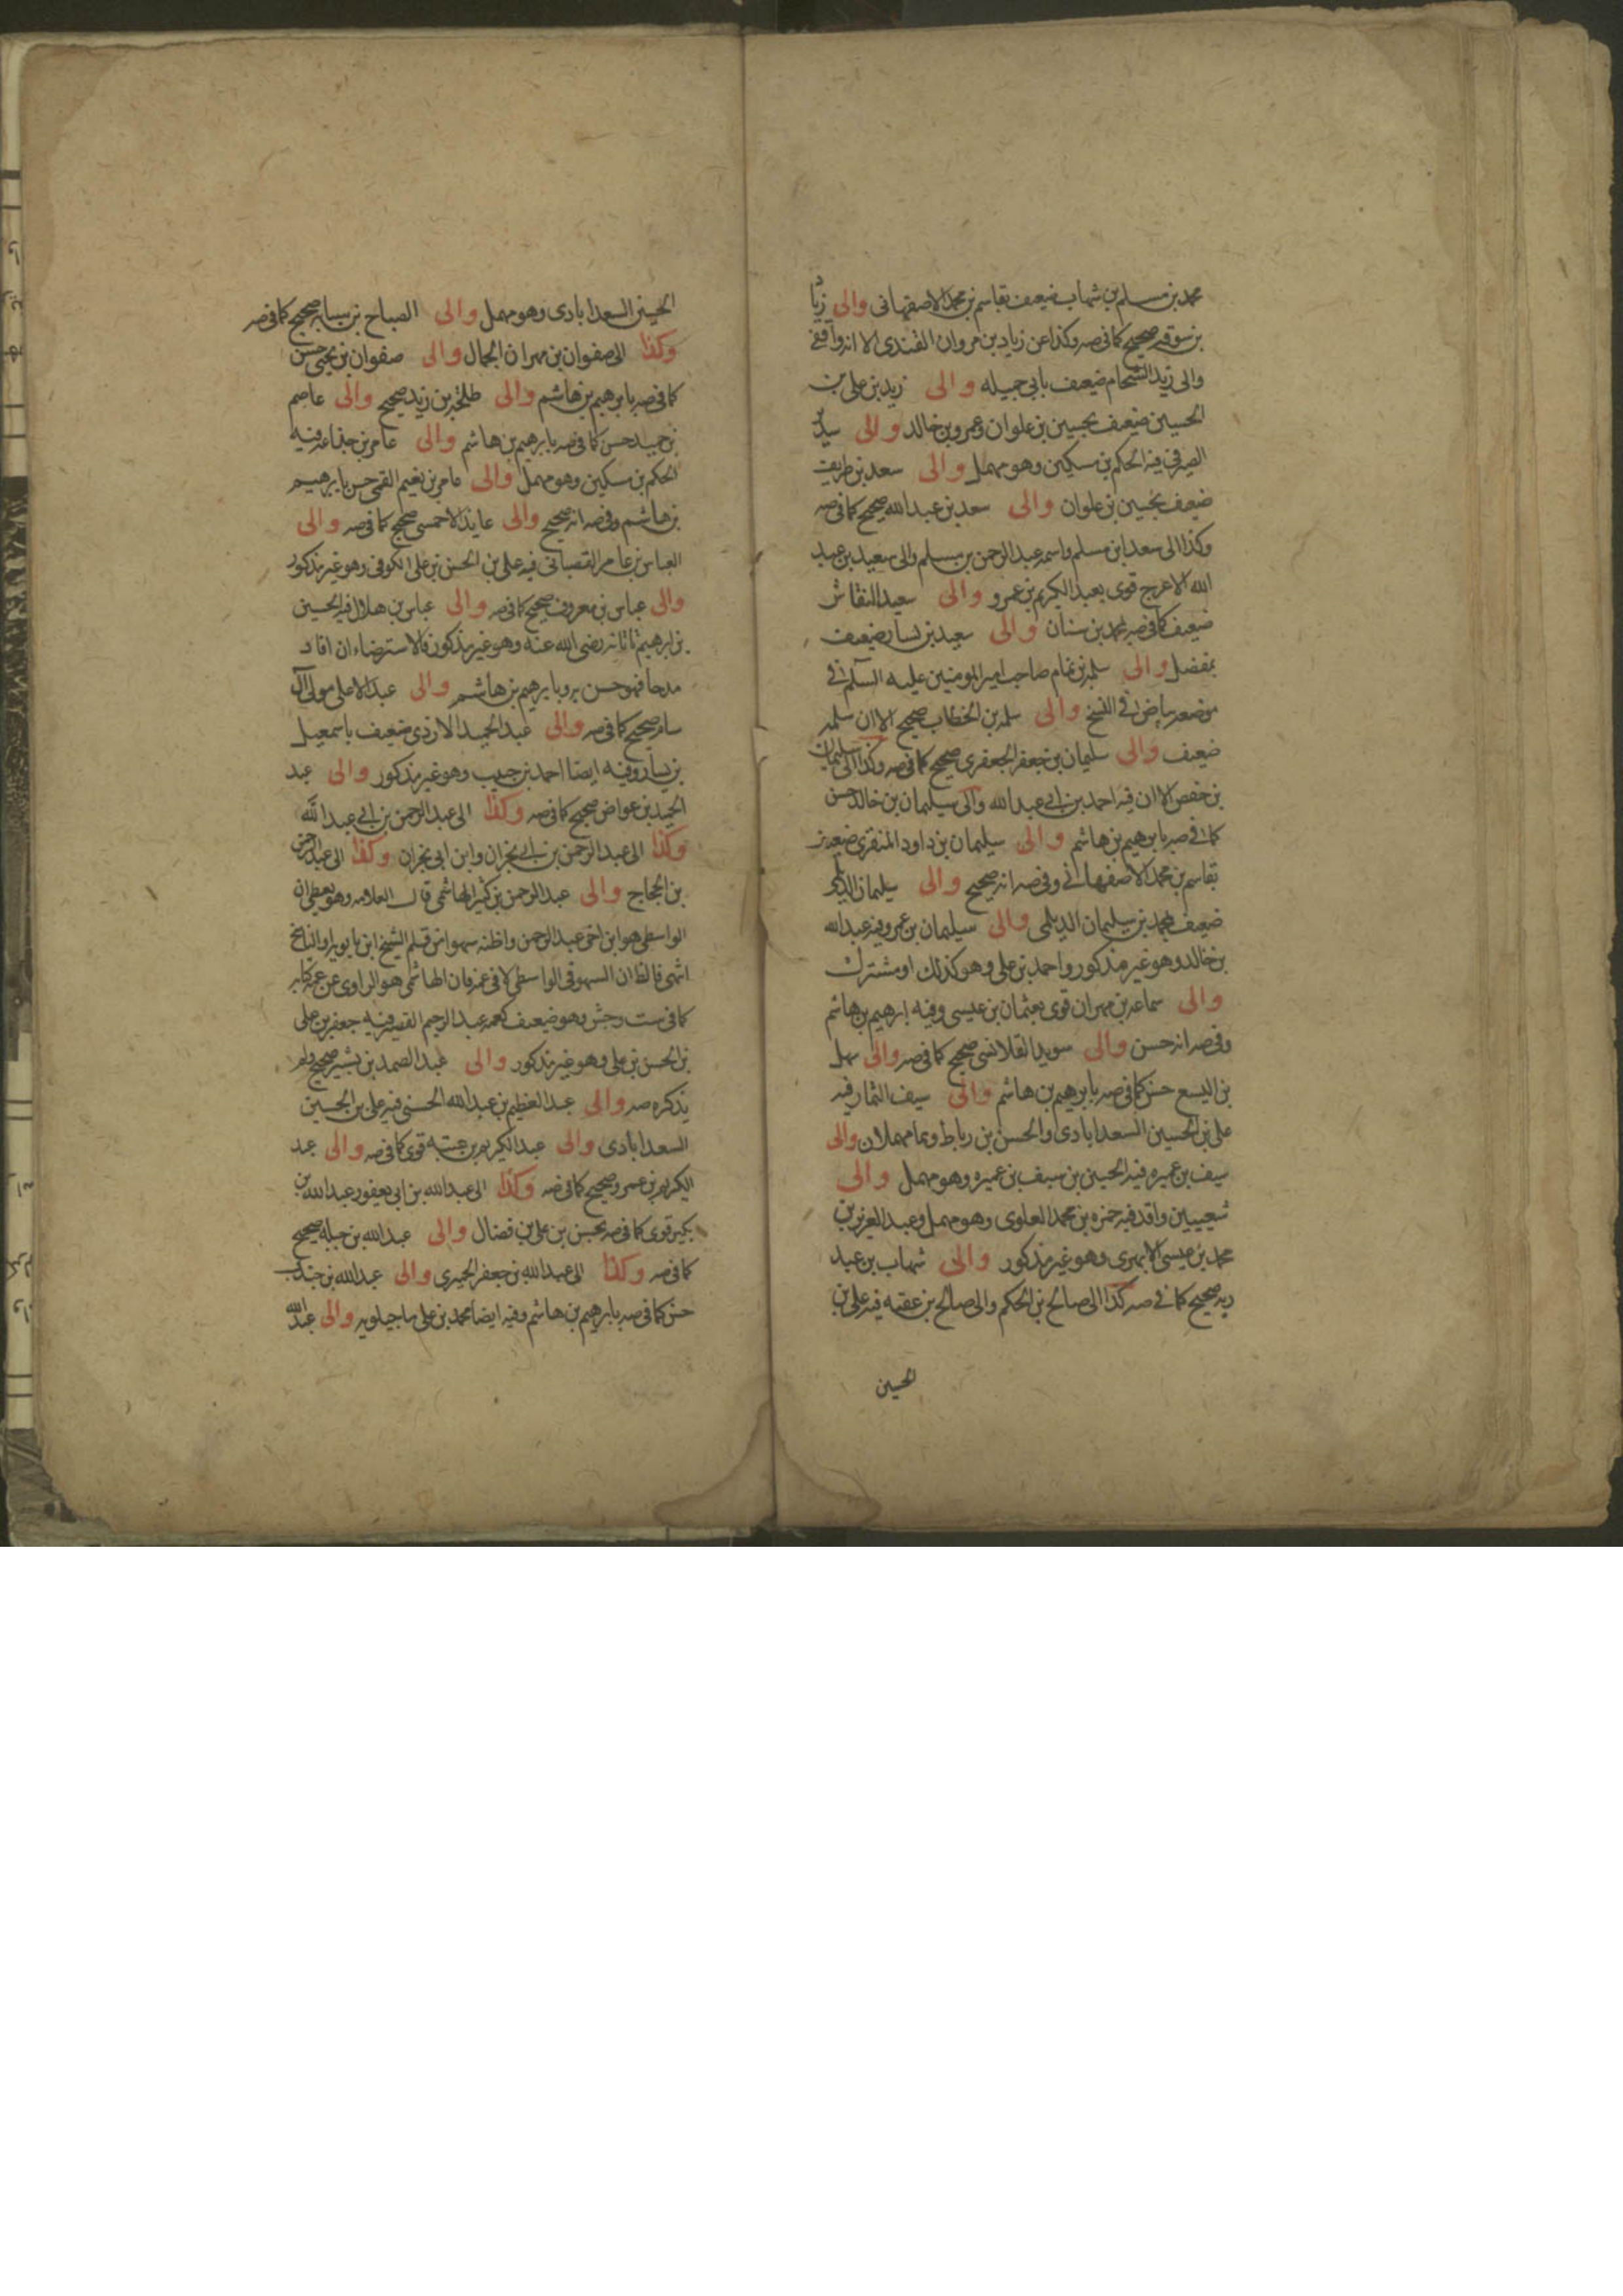 محمد بن مسلم بن شهاب ضعيف بقاسم بن محمد الاصفهانى والى زياد
بن سوقه صحيح كما فى صه وكذا عن زياد بن مروان القندى الا انه واقفى
والى زيد الشحام ضعيف بابى جميله والى زيد بن على بن
الحسين ضعيف بحسين بن علوان وعمرو بن خالد والى سدير
الصيرفى فيه الحكم بن مسكين وهو مهمل والى سعد بن طريف
ضعيف بحسين بن علوان والى سعد بن عبدالله صحيح كما فى صه
وكذا الى سعدا بن مسلم واسمه عبد الرحمن بن مسلم والى سعيد بن عبد
الله الاعرج قوى بعبد الكريم بن عمرو والى سعيد النقاش
ضعيف كما فى صه بمحمد بن سنان والى سعيد بن يسار ضعيف
بمفضل والى سلمه بن تمام صاحب امير المومنين عليه السلم فى
موضعه بياض فى النسخ والى سلمه بن الخطاب صحيح الا ان سلمه
ضعيف والى سليمان بن جعفر الجعفرى صحيح كما فى صه وكذا الى سليمان
بن حفص الا ان فيه احمد بن ابى عبد الله والى سليمان بن خالد حسن
كما فى صه بابرهيم بن هاشم والى سليمان بن داود المنقرى ضعيف
بقاسم بن محمد الاصفهانى وفى صه انه صحيح والى سليمان الديلمى
ضعيف بمحمد بن سليمان الديلمى والى سليمان بن عمرو فيه عبدالله
بن خالد وهو غير مذكور واحمد بن على وهو كذلك او مشترك
والى سماعه بن مهران قوى بعثمان بن عيسى وفيه ابرهيم بن هاشم
وفى صه انه حسن والى سويد القلانسى صحيح كما فى صه والى سهل
بن اليسع حسن كما فى صه بابرهيم بن هاشم والى سيف التمار فيه
على بن الحسين السعدابادى والحسن بن رباط وهما مهملان والى
سيف بن عميره فيه الحسين بن سيف بن عميره وهو مهمل والى
شعيب بن واقد فيه حمزه بن محمد العلوى وهو مهمل وعبد العزيز بن
محمد بن عيسى الابهرى وهو غير مذكور والى شهاب بن عبد
ربه صحيح كما فى صه كذا الى صالح بن الحكم والى صالح بن عقبه فيه على بن
الحسين
الحسين السعدابادى وهو مهمل والى الصباح بن سيابه صحيح كما فى صه
وكذا الى صفوان بن مهران الجمال والى صفوان بن يحيى حسن
كما فى صه بابرهيم بن هاشم والى طلحه بن زيد صحيح والى عاصم
بن حميد حسن كما فى صه بابرهيم بن هاشم والى عامر بن جذاعه فيه
الحكم بن مسكين وهو مهمل والى عامر بن نعيم القمى حسن بابرهيم
بن هاشم وفى صه انه صحيح والى عايذ الاحمسى صحيح كما فى صه والى
العباس بن عامر القصبانى فيه على بن الحسن بن على الكوفى وهو غير مذكور
والى عباس بن معروف صحيح كما فى صه والى عباس بن هلال فيه الحسين
بن ابرهيم ناتانه رضى الله عنه وهو غير مذكور فالاسترضاء ان افاد
مدحا فهو حسن به وبابرهيم بن هاشم والى عبد الاعلى مولى آل
سام صحيح كما فى صه والى عبد الحميد الازدى ضعيف باسمعيل
بن يسار وفيه ايضا احمد بن حبيب وهو غير مذكور والى عبد
الحميد بن عواض صحيح كما فى صه وكذا الى عبد الرحمن بن ابى عبد الله
وكذا الى عبد الرحمن بن ابى نجران وابن ابى نجران وكذا الى عبد الرحمن
بن الحجاج والى عبد الرحمن بن كثير الهاشمى قال العلامه وهو يعطى ان
الواسطى هو ابن اخى عبد الرحمن واظنه سهوا من قلم الشيخ ابن بابويه او الناسخ
انتهى فالظ ان السهو فى الواسطى لا فى عمه فان الهاشمى هو الراوى عن عمه كما يه
كما فى ست وجش وهو ضعيف كعمه عبد الرحيم القصير فيه جعفر بن على
بن الحسن بن على وهو غير مذكور والى عبد الصمد بن بشير صحيح ولم
يذكره صه والى عبد العظيم بن عبد الله الحسنى فيه على بن الحسين
السعدابادى والى عبد الكريم بن عتبه قوى كما فى صه والى عبد
الكريم بن عمرو صحيح كما فى صه وكذا الى عبد الله بن ابى يعفور عبد الله بن
بكير قوى كما فى صه بحسن بن على بن فضال والى عبد الله بن جبله صحيح
كما فى صه وكذا الى عبد الله بن جعفر الحميرى والى عبد الله بن جندب
حسن كما فى صه بابرهيم بن هاشم وفيه ايضا محمد بن على ماجيلويه والى عبد الله